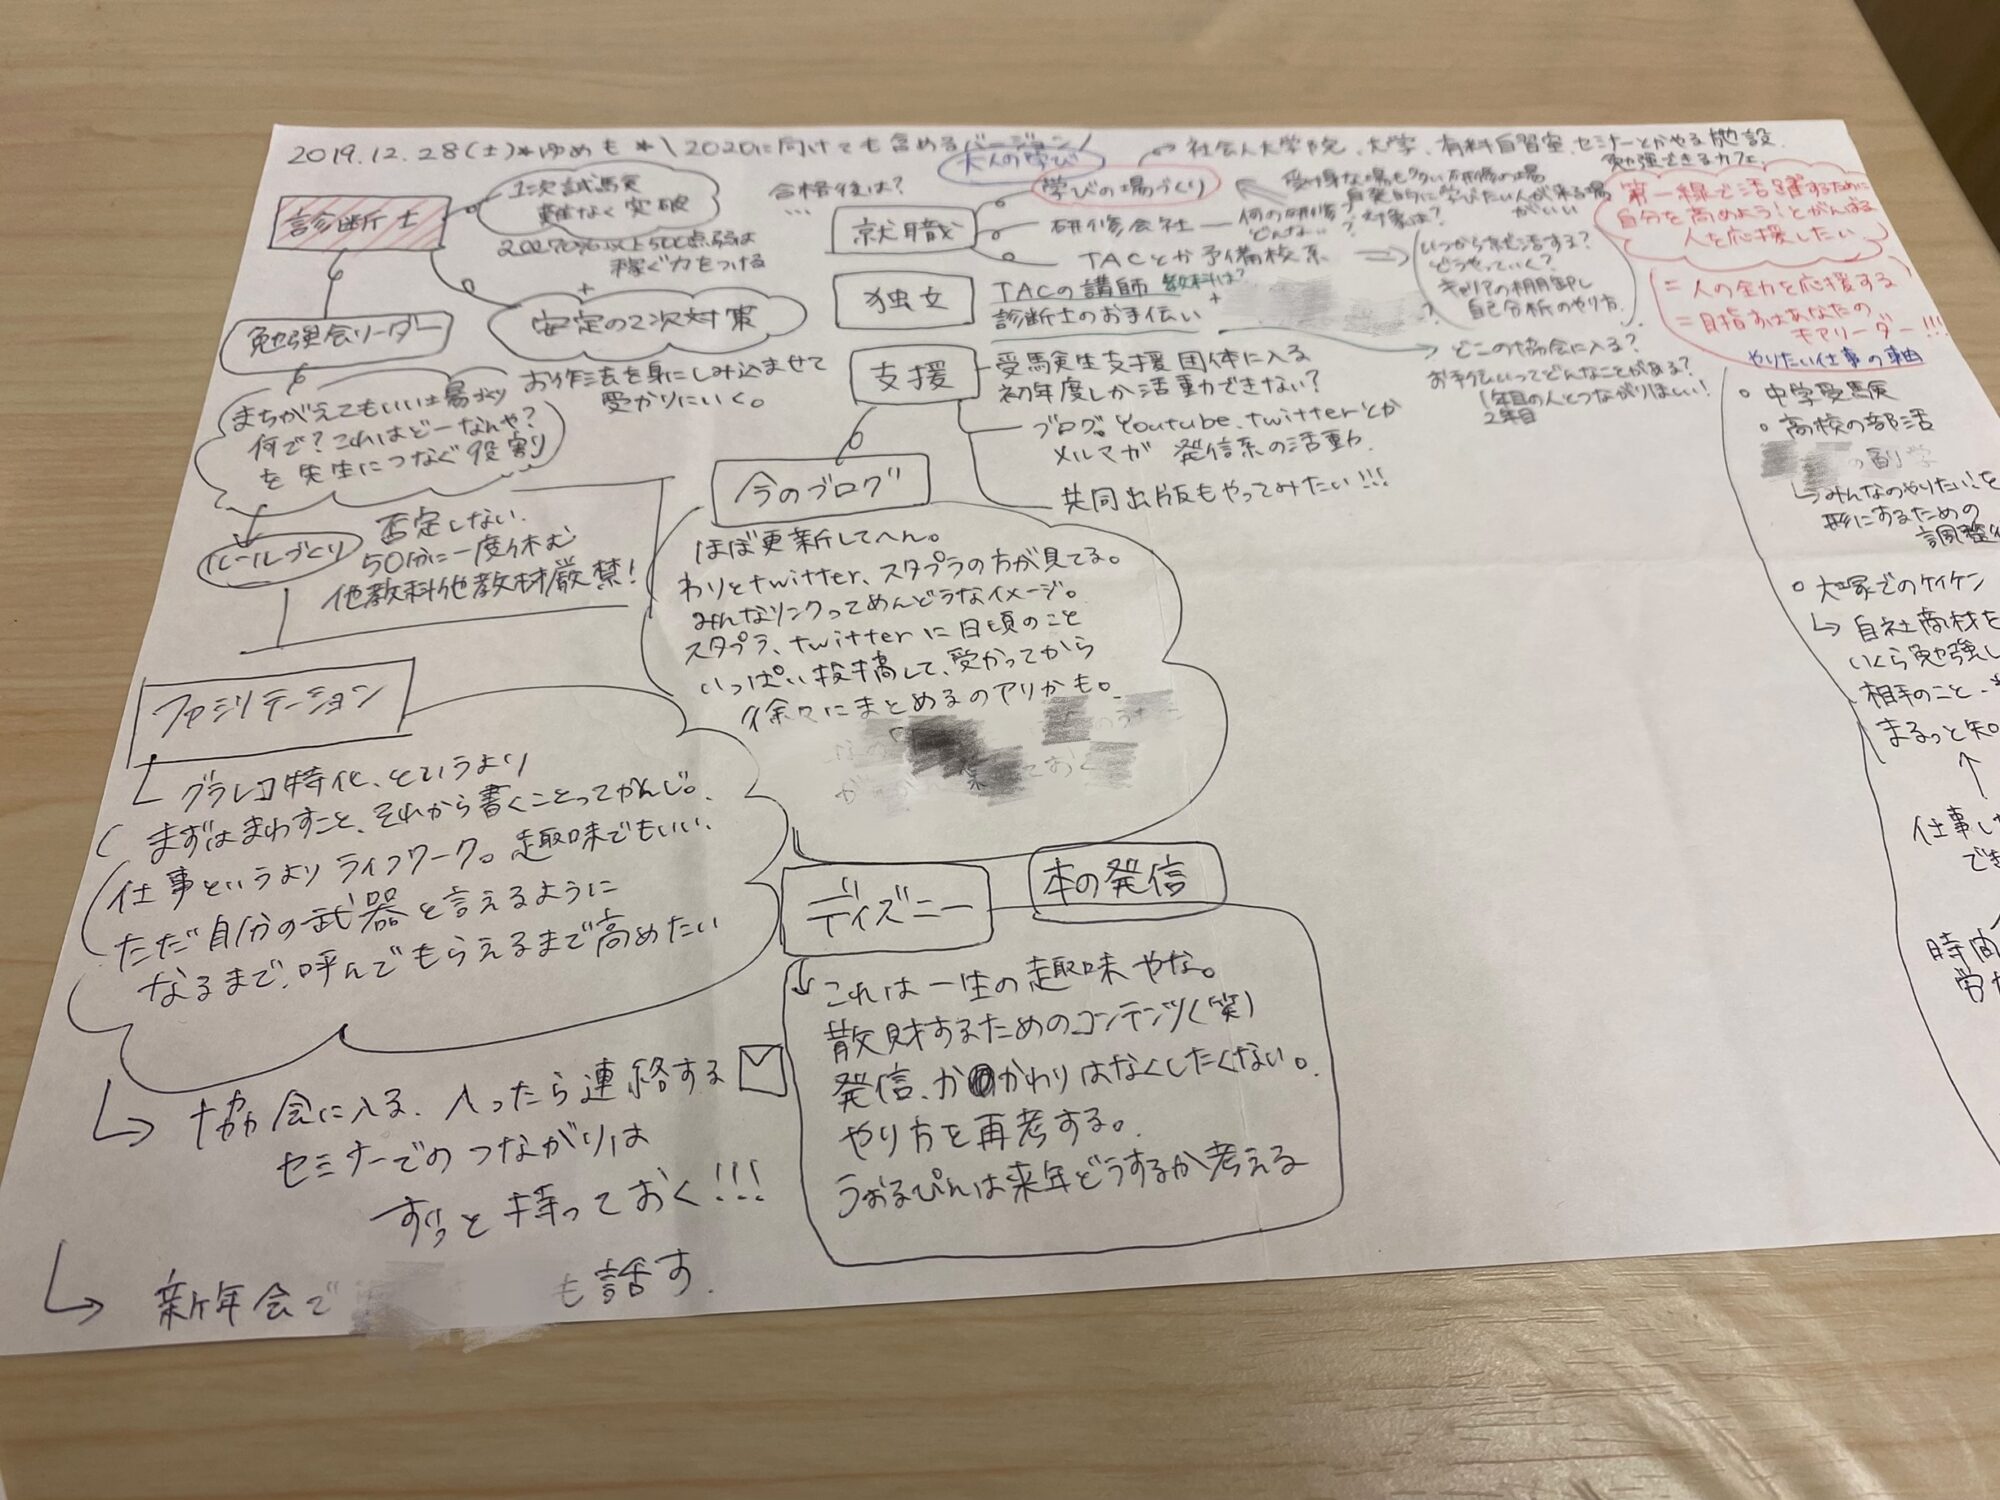 2019.12.28(土)*ゆめも*\2020に向けても含めるバージョン/
診断士
1次試験
難なく突破
稼ぐ力をつける
+
安定の2次対策
お作法を身にしみ込ませて
受かりにいく。
勉強会リーダー
まちがえてもいい場づくり
何で?これはどーなんや?
を先生につなぐ役割
ルールづくり
否定しない.
50分に一度休む
他教科他教材厳禁!
ファシリテーション
グラレコ特化、というより
まずはまわすこと、それから書くことってかんじ。
仕事というよりライフワーク。趣味でもいい、
ただ自分の武器と言えるように
なるまで、呼んでもらえるまで高めたい
協会に入る、入ったら連絡する
セミナーでのつながりは
ずっと持っておく!!!
新年会で
も話す.
合格後は?
...
大人の学び
就職
学びの場づくり
社会人大学院、大学、有料自習室、セミナーとかやる施設
勉強できるカフェ
受け身な場も多い研修の場
自発的に学びたい人が来る場
がいい
研修会社
何の研修?
どんな 対象は?
TACとか予備校系
いつから就活する?
どうやっていく?
キャリアの棚卸し
自己分析のやり方
独立
TACの講師 教科は?
+
診断士のお手伝い
どこの協会に入る?
お手伝いってどんなことがある?
1年目の人とつながりほしい!
2年目
支援
受験生支援団体に入る
初年度しか活動できない?
ブログ。Youtube、twitterとか
メルマガ 発信系の活動.
共同出版もやってみたい!!!
今のブログ
ほぼ更新してへん。
わりとtwitter、スタプラの方が見てる。
みんなリンクってめんどうなイメージ。
スタプラ、twitterに日頃のこと
いっぱい投稿して、受かってから
徐々にまとめるのアリかも。
ディズニー
本の発信
これは一生の趣味やな。
散財するためのコンテンツ(笑)
発信、かかわりはなくしたくない。
やり方を再考する。
うぉるぴんは来年どうするか考える
第一線で活躍するために
自分を高めよう!とがんばる
人を応援したい
= 人の全力を応援する
= 目指すはあなたの
チアリーダー!!!
やりたい仕事の軸
中学受験
高校の部活
の副学
みんなのやりたい!を
形にするための
調整
大塚でのケイケン
自社商材を
いくら勉強し
相手のこと、
まるっと知
仕事し
でき
時間
労